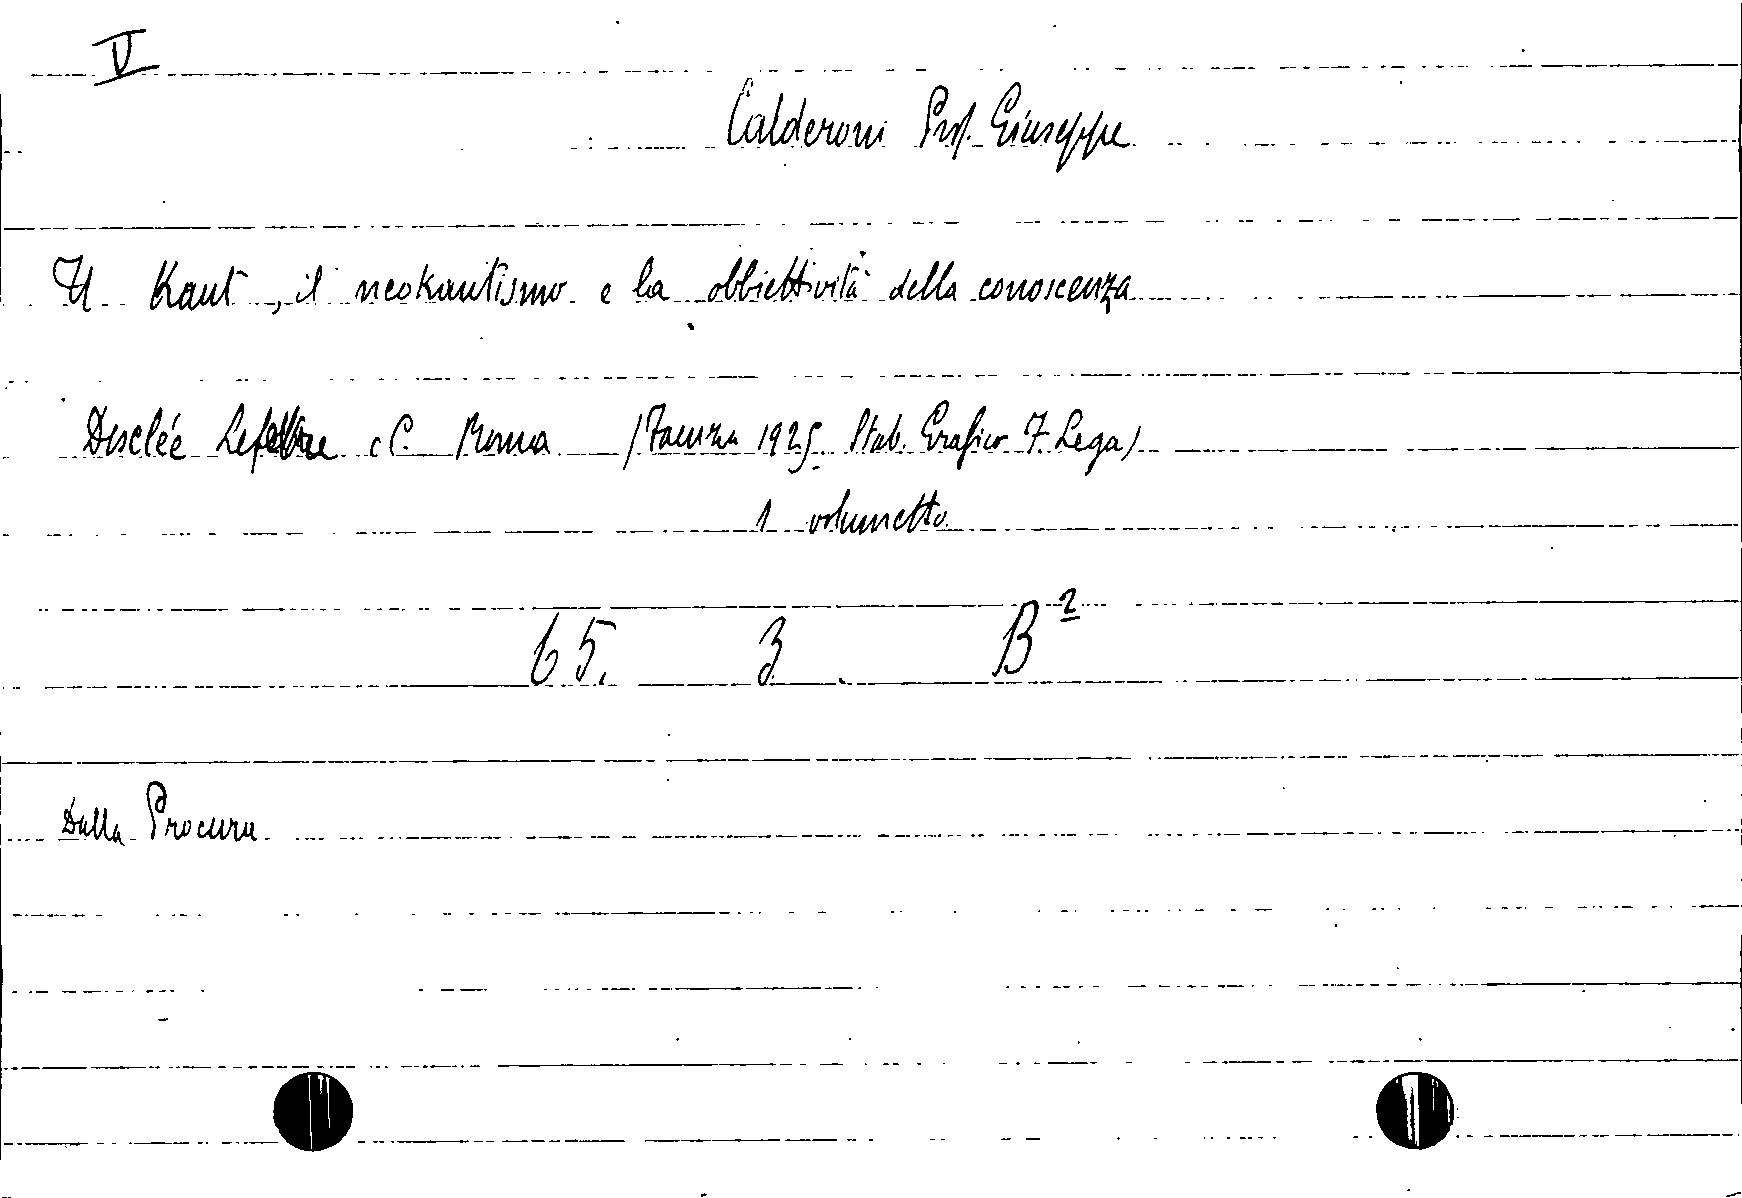 V
Calderoni Prof. Giuseppe
Il Kant, il neokantismo e la obbiettività della conoscenza
Desclée Lefebvre e C. Roma (Faenza 1925. Stab. Grafico F. Lega)
1 volumetto
65. 3. B²
Dalla Procura